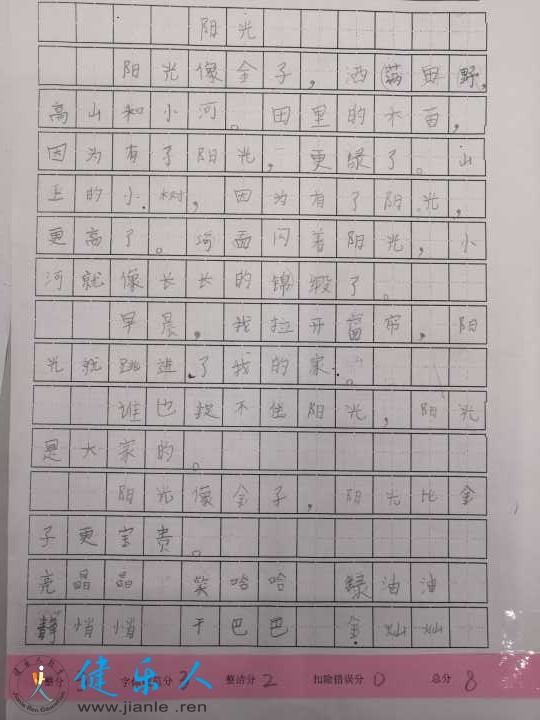 阳光
阳光像金子，洒满田野，
高山和小河。田里的禾苗，
因为有了阳光，更绿了。山
上的小树，因为有了阳光，
更高了。河面闪着阳光，小
河就像长长的锦缎了。
早晨，我拉开窗帘，阳
光就跳进了我的家。
谁也捉不住阳光，阳光
是大家的。
阳光像金子，阳光比金
子更宝贵。
亮晶晶 笑哈哈 绿油油
静悄悄 干巴巴 金灿灿
整洁分 2 扣除错误分 0 总分 8
健乐人
www.jianle.ren